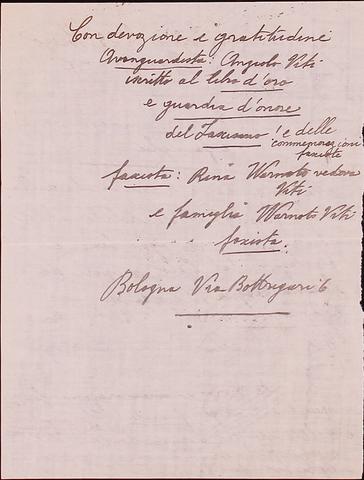 Con devozione e gratitudine
Avanguardista: Angiolo Viti
iscritto al libro d'oro
e guardia d'onore
del Fascismo! e delle
commemorazioni
fasciste
fascista: Rina Warnots vedova
Viti
e famiglia Warnots Viti
fascista.
Bologna Via Bottrigari 6